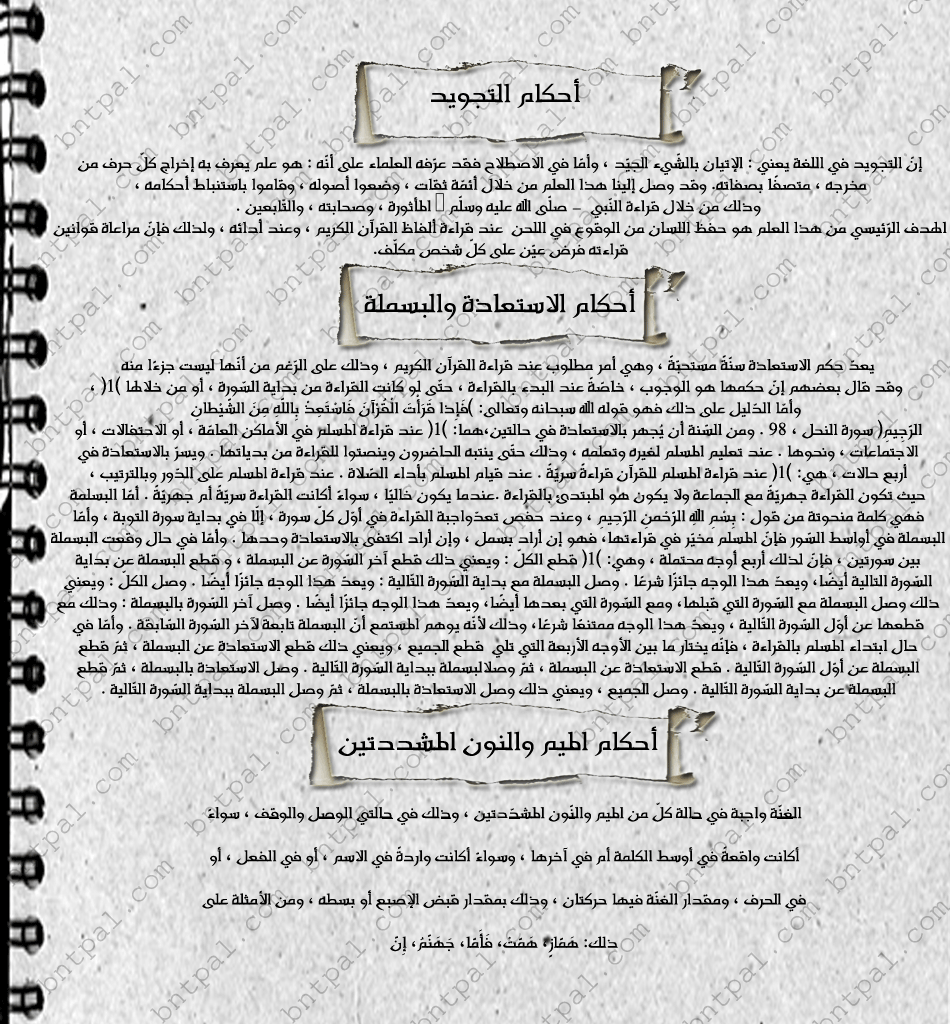 أحكام التجويد
إنّ التجويد في اللغة يعني : الإتيان بالشّيء الجيّد ، وأمّا في الاصطلاح فقد عرّفه العلماء على أنّه : هو علم يعرف به إخراج كلّ حرف من
مخرجه ، متصفًا بصفاته. وقد وصل إلينا هذا العلم من خلال أئمة ثقات ، وضعوا أصوله ، وقاموا باستنباط أحكامه ،
وذلك من خلال قراءة النّبي – صلّى الله عليه وسلّم المأثورة ، وصحابته ، والتّابعين .
الهدف الرّئيسي من هذا العلم هو حفظ اللسان من الوقوع في اللحن عند قراءة ألفاظ القرآن الكريم ، وعند أدائه ، ولذلك فإنّ مراعاة قوانين
قراءته فرض عيْن على كلّ شخص مكلّف.
أحكام الاستعاذة والبسملة
يعدّ حكم الاستعاذة سنّةً مستحبّةً ، وهي أمر مطلوب عند قراءة القرآن الكريم ، وذلك على الرّغم من أنّها ليست جزءًا منه
وقد قال بعضهم إنّ حكمها هو الوجوب ، خاصّةً عند البدء بالقراءة ، حتّى لو كانت القراءة من بداية السّورة ، أو من خلالها )1( ،
وأمّا الدّليل على ذلك فهو قوله الله سبحانه وتعالى: )فَإِذا قَرَأْتَ الْقُرْآنَ فَاسْتَعِذْ بِاللَّهِ مِنَ الشَّيْطانِ
الرَّجِيمِ( سورة النحل ، 98 . ومن السّنة أن يُجهر بالاستعاذة في حالتين،هما: )1( عند قراءة المسلم في الأماكن العامّة ، أو الاحتفالات ، أو
الاجتماعات ، ونحوها . عند تعليم المسلم لغيره وتعلمه ، وذلك حتّى ينتبه الحاضرون وينصتوا للقراءة من بدياتها . ويسرّ بالاستعاذة في
أربع حالات ، هي: )1( عند قراءة المسلم للقرآن قراءةً سريّةً . عند قيام المسلم بأداء الصّلاة . عند قراءة المسلم على الدّور وبالترتيب ،
حيث تكون القراءة جهريّة مع الجماعة ولا يكون هو المبتدئ بالقراءة .عندما يكون خاليًا ، سواءً أكانت القراءة سريّةً أم جهريّةً . أمّا البسلمة
فهي كلمة منحوتة من قول : بِسْمِ اللَّهِ الرَّحْمنِ الرَّحِيمِ ، وعند حفص تعدّواجبة القراءة في أوّل كلّ سورة ، إلّا في بداية سورة التوبة ، وأمّا
البسملة في أواسط السّور فإنّ المسلم مخيّر في قراءتها، فهو إن أراد بسمل ، وإن أراد اكتفى بالاستعاذة وحدها . وأمّا في حال وقعت البسملة
بين سورتين ، فإنّ لذلك أربع أوجه محتملة ، وهي: )1( قطع الكلّ : ويعني ذلك قطع آخر السّورة عن البسملة ، و قطع البسملة عن بداية
السّورة التالية أيضًا، ويعدّ هذا الوجه جائزًا شرعًا . وصل البسملة مع بداية السّورة التّالية : ويعدّ هذا الوجه جائزًا أيضًا . وصل الكلّ : ويعني
ذلك وصل البسملة مع السّورة التي قبلها، ومع السّورة التي بعدها أيضًا، ويعدّ هذا الوجه جائزًا أيضًا . وصل آخر السّورة بالبسملة : وذلك مع
قطعها عن أوّل السّورة التّالية ، ويعدّ هذا الوجه ممتنعًا شرعًا، وذلك لأنّه يوهم المستمع أنّ البسملة تابعة لآخر السّورة السّابقة . وأمّا في
حال ابتداء المسلم بالقراءة ، فإنّه يختار ما بين الأوجه الأربعة التي تلي قطع الجميع ، ويعني ذلك قطع الاستعاذة عن البسملة ، ثمّ قطع
البسملة عن أوّل السّورة التّالية . قطع الاستعاذة عن البسملة ، ثمّ وصلالبسملة ببداية السّورة التّالية . وصل الاستعاذة بالبسملة ، ثمّ قطع
البسملة عن بداية السّورة التّالية . وصل الجميع ، ويعني ذلك وصل الاستعاذة بالبسملة ، ثمّ وصل البسملة ببداية السّورة التّالية .
أحكام الميم والنون المشددتين
الغنّة واجبة في حالة كلّ من الميم والنّون المشدّدتين ، وذلك في حالتي الوصل والوقف ، سواءً
أكانت واقعةً في أوسط الكلمة أم في آخرها ، وسواءً أكانت واردةً في الاسم ، أو في الفعل ، أو
في الحرف ، ومقدار الغنّة فيها حركتان ، وذلك بمقدار قبض الإصبع أو بسطه ، ومن الأمثلة على
ذلك: هَمَّازٍ، هَمَّتْ، فَأَمَّا، جَهَنَّمُ، إِنّ
bntpal.com